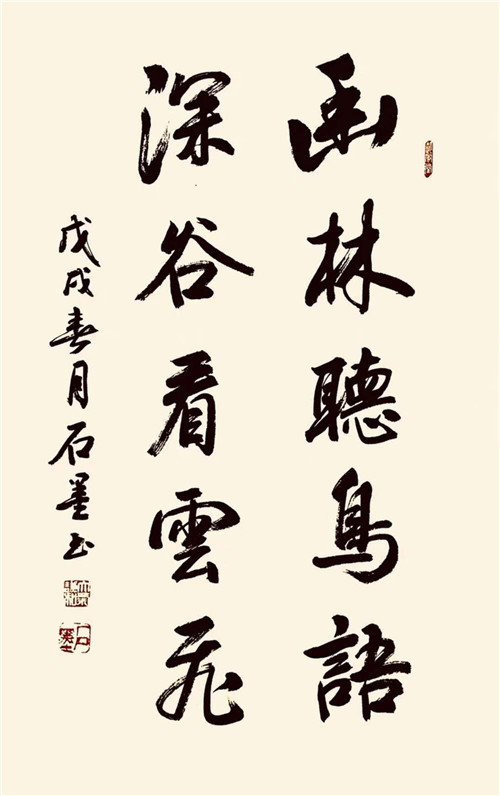 幽林聽鳥語
深谷看雲飛
戊戌春月石墨书